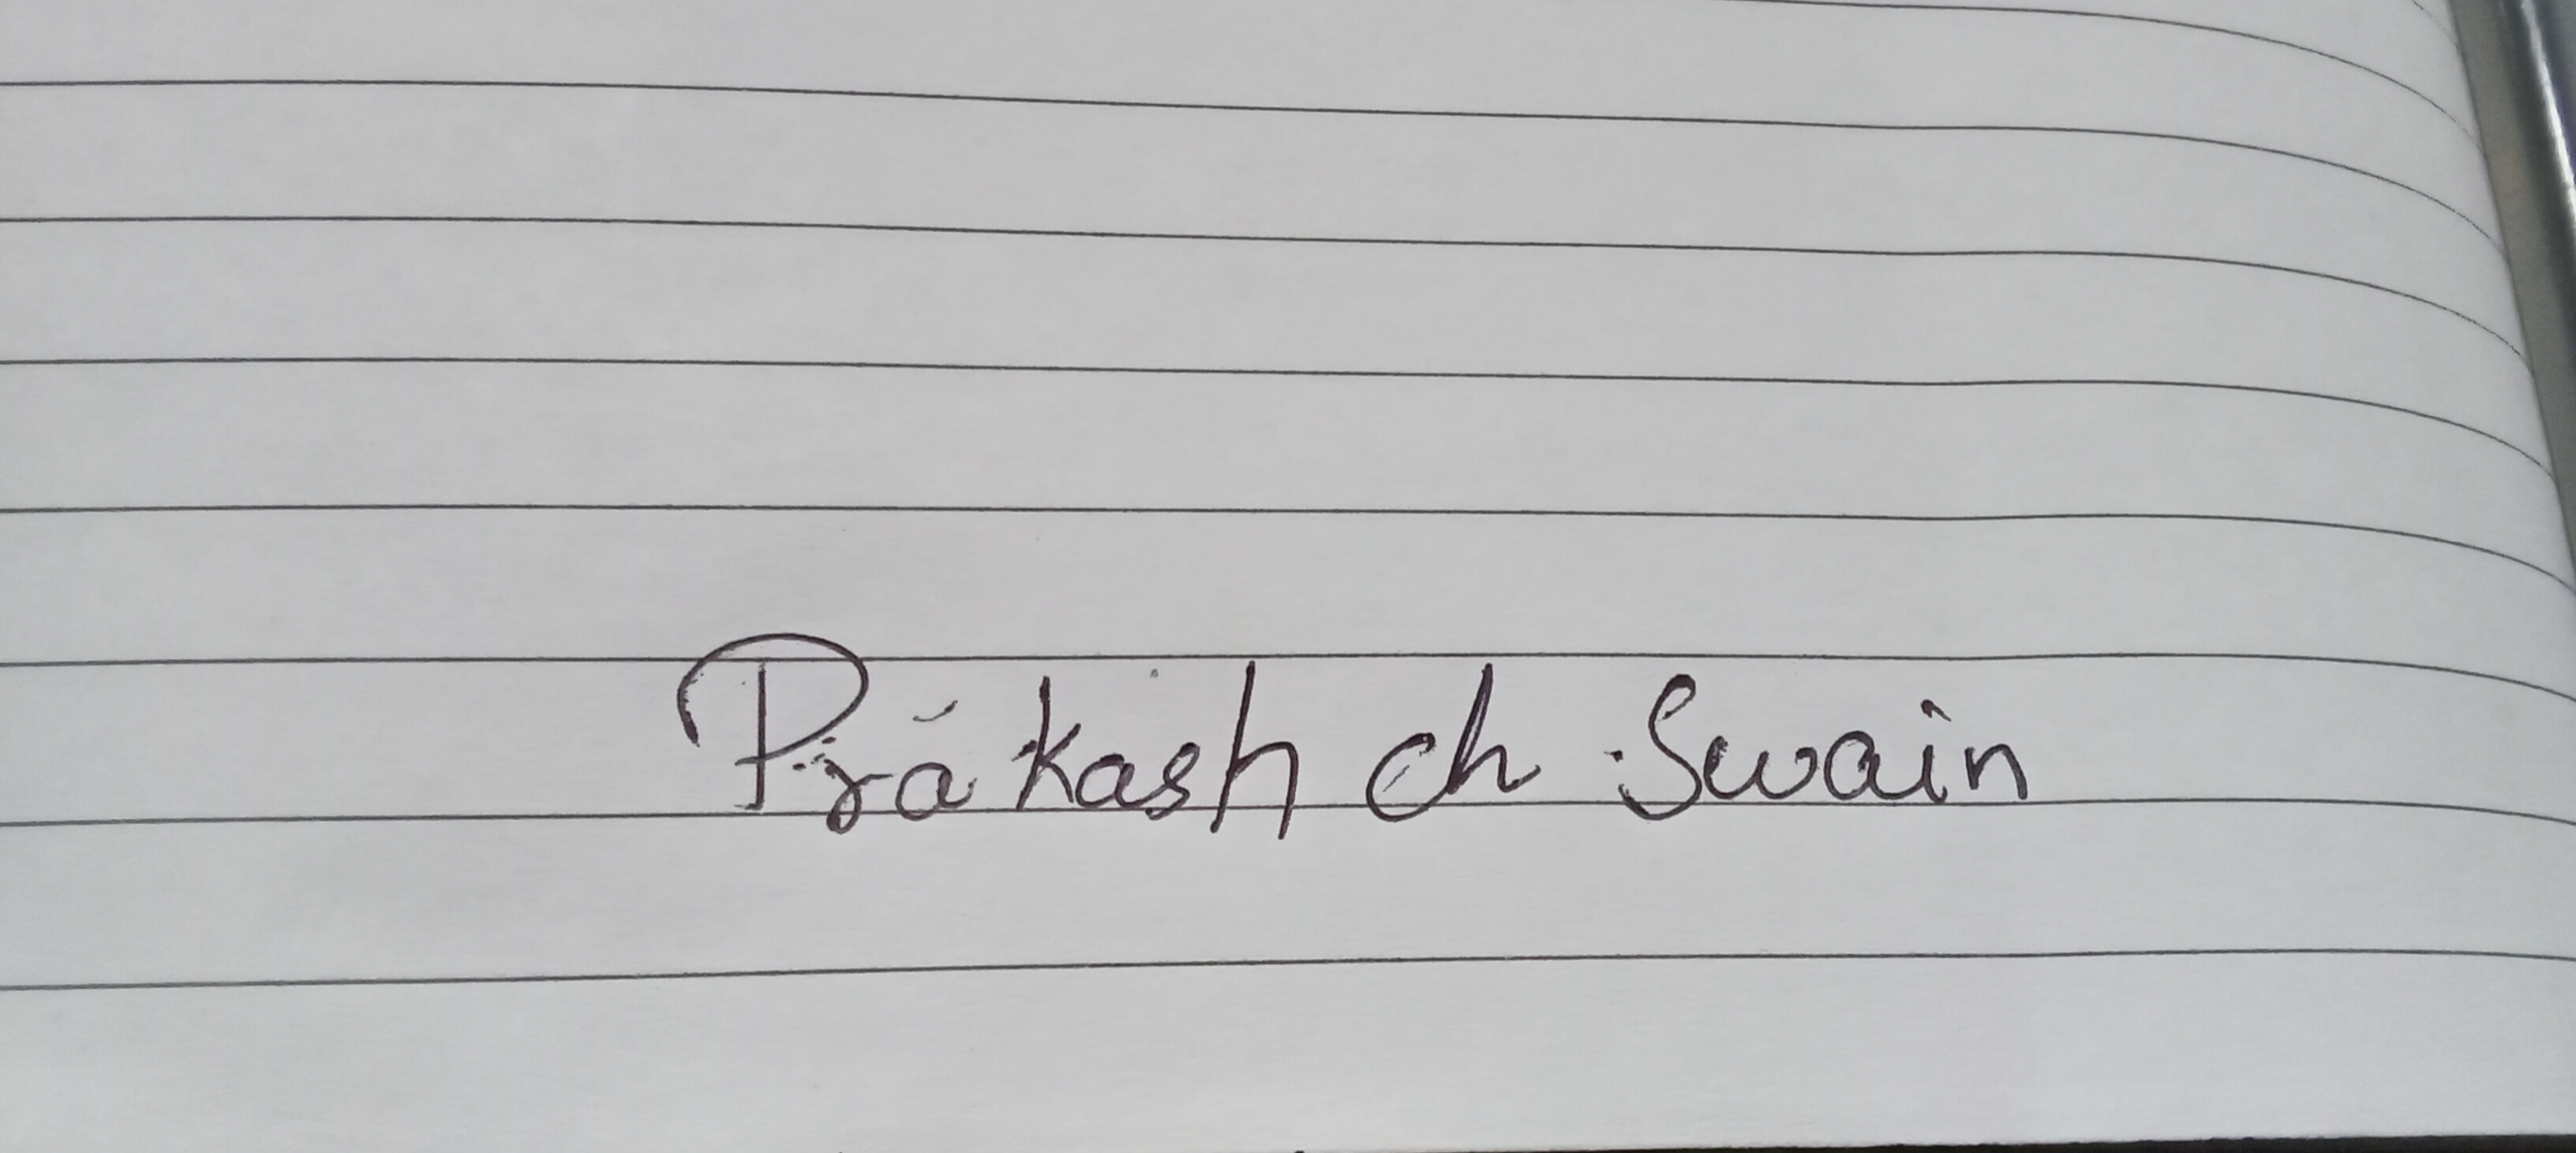 Prakash ch. Swain